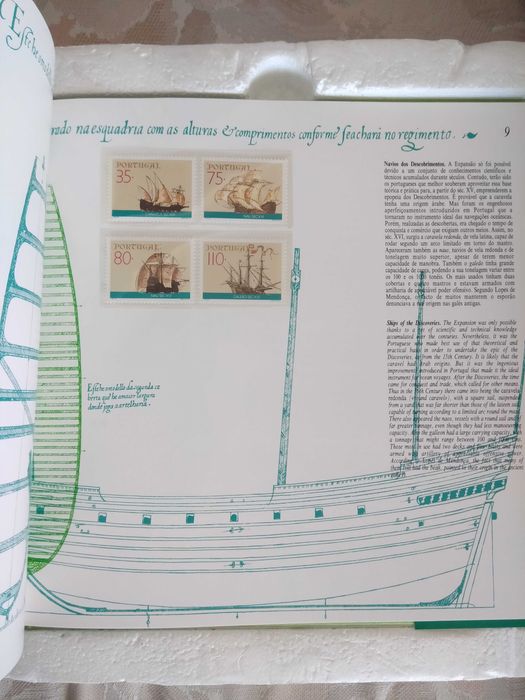 rado na esquadria com as alturas & comprimentos conforme se achará no regimento.
9
PORTUGAL
35.
PORTUGAL
75.
PORTUGAL
80.
PORTUGAL
110.
Navios dos Descobrimentos. A Expansão só foi possível
devido a um conjunto de conhecimentos científicos e
técnicos acumulados durante séculos. Contudo, terão sido
os portugueses que melhor souberam aproveitar essa base
teórica e prática para, a partir do séc. XV, empreenderem a
epopeia dos Descobrimentos. É provável que a caravela
tenha uma origem árabe. Mas foram os engenhosos
aperfeiçoamentos introduzidos em Portugal que a
tornaram no instrumento ideal das navegações oceânicas.
Porém, realizadas as descobertas, era chegado o tempo de
conquista e comércio que exigiam outros meios. Assim, no
séc. XVI, surgiu a caravela redonda, de vela latina, capaz de
rodar segundo um arco limitado em torno do mastro.
Apareceram também as naus, navios de vela redonda e de
tonelagem muito superior, apesar de terem menos
capacidade de manobra. Também o galeão tinha grande
capacidade de carga, podendo a sua tonelagem variar entre
os 100 e os 1000 tonéis. Os mais usados tinham duas
cobertas e quatro mastros e estavam armados com
artilharia de apreciável poder ofensivo. Segundo Lopes de
Mendonça, o facto de muitos manterem o esporão
denunciava a sua origem nas galés antigas.
Ships of the Discoveries. The Expansion was only possible
thanks to a set of scientific and technical knowledge
accumulated over the centuries. Nevertheless, it was the
Portuguese who made best use of that theoretical and
practical basis in order to undertake the epic of the
Discoveries, as from the 15th Century. It is likely that the
caravel had Arab origins. But it was the ingenious
improvements introduced in Portugal that made it the ideal
instrument for ocean voyages. After the Discoveries, the time
came for conquest and trade, which called for other means.
Thus in the 16th Century there came into being the caravela
redonda (round caravel), with a square sail, suspended
from a yard that was far shorter than those of the lateen sail
capable of turning according to a limited arc round the mast.
There also appeared the naus, vessels with a round sail and of
far greater tonnage, even though they had less manoeuvre
capacity. Also the galleon had a large carrying capacity, with
a tonnage that might range between 100 and 1000 tons.
Those most in use had two decks and four masts and were
armed with artillery of appreciable offensive power.
According to Lopes de Mendonça, the fact that many of
them had the beak, pointed to their origin in the ancient